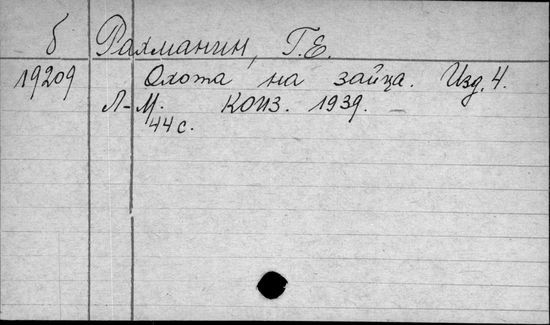 б Рахманин, Г.Е.
19209 Охота на зайца. Изд. 4.
Л-М. КОИЗ. 1939.
44 с.